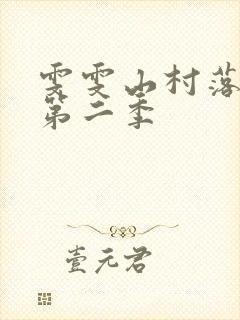 雯雯山村落
第二季
壹元君